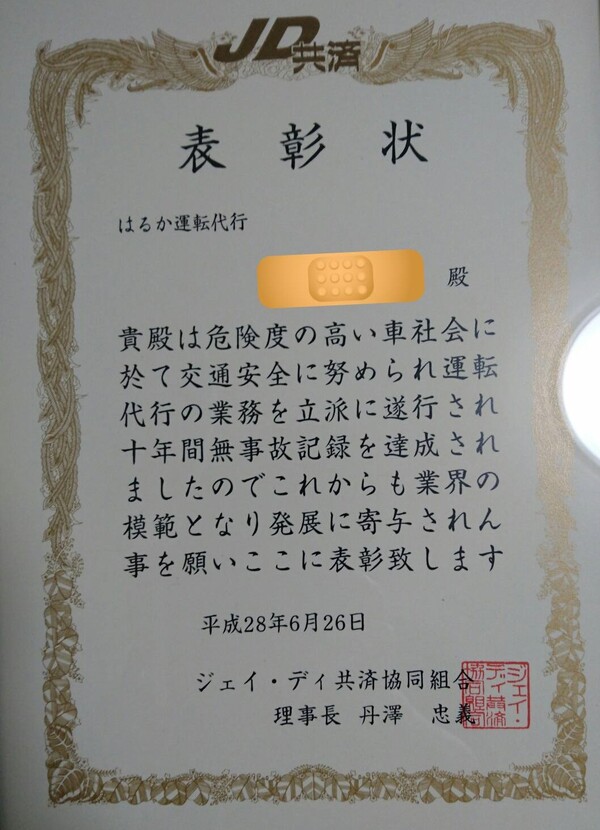 JD共済
表彰状
はるか運転代行
殿
貴殿は危険度の高い車社会に
於て交通安全に努められ運転
代行の業務を立派に遂行され
十年間無事故記録を達成され
ましたのでこれからも業界の
模範となり発展に寄与されん
事を願いここに表彰致します
平成28年6月26日
ジェイ・ディ共済協同組合
理事長 丹澤 忠義